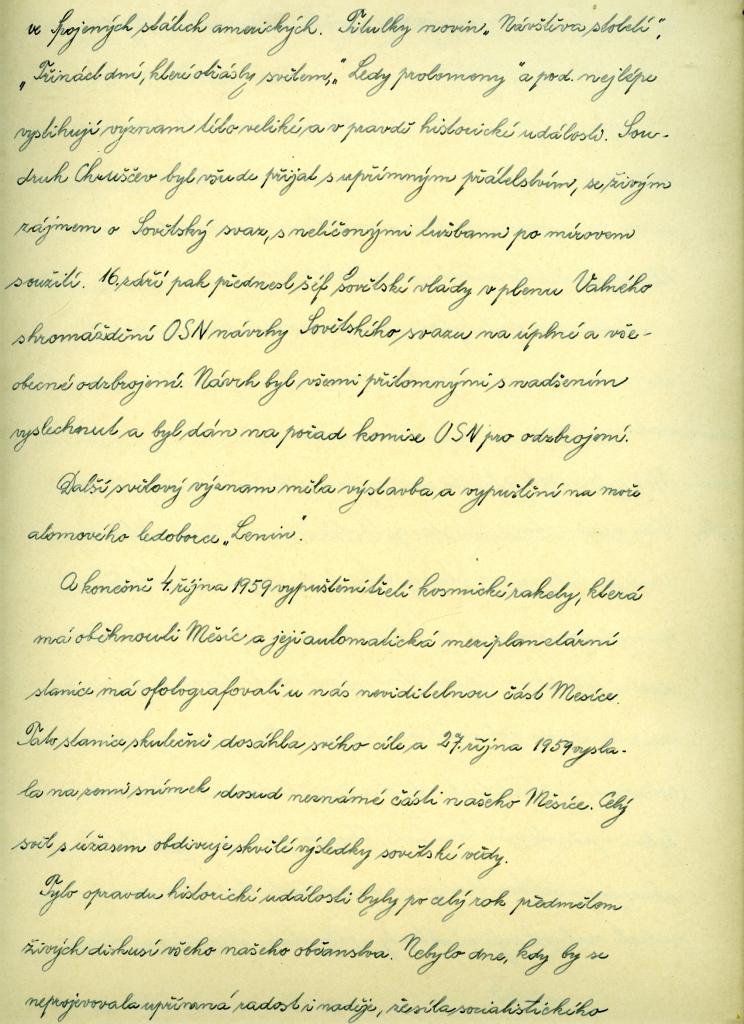 ve Spojených státech amerických. Titulky novin „Návštěva století“,
„Třináct dní, které otřásly světem,“ „Ledy prolomeny“ a pod. nejlépe
vystihují význam této veliké a v pravdě historické události. Sou-
druh Chruščev byl všude přijat s upřímným přátelstvím, se živým
zájmem o Sovětský svaz, s nelíčenými tužbami po mírovem
soužití. 16. září pak přednesl šéf Sovětské vlády v plenu Valného
shromáždění OSN návrhy Sovětského svazu na úplné a vše-
obecné odzbrojení. Návrh byl všemi přítomnými s nadšením
vyslechnut a byl dán na pořad komise OSN pro odzbrojení.
Další světový význam měla výstavba a vypuštění na moře
atomového ledoborce „Lenin“.
A konečně 4. října 1959 vypuštění třetí kosmické rakety, která
má oběhnouti Měsíc a její automatická meziplanetární
stanice má ofotografovati u nás neviditelnou část Mesíce.
Tato stanice skutečně dosáhla svého cíle a 27. října 1959 vysla-
la na zemi snímek dosud neznámé části našeho Měsíce. Celý
svět s úžasem obdivuje skvělé výsledky sovětské vědy.
Tyto opravdu historické události byly po celý rok předmětem
živých diskusí všeho našeho občanstva. Nebylo dne, kdy by se
neprojevovala upřímná radost i naděje, že síla socialistického